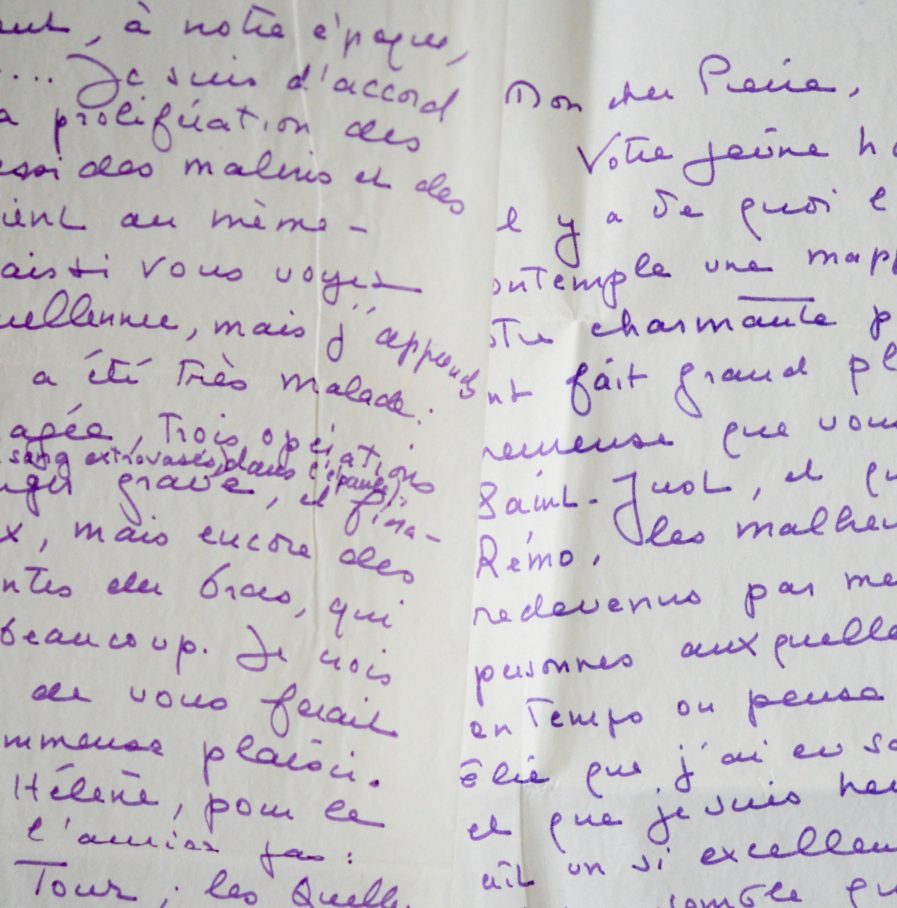 , à notre époque,
.... Je suis d'accord
a prolifération des
des malins et des
au même -
si vous voyez
mais j'apprends
a été très malade.
agée, Trois opérations
sang extravasés, dans l'épaule,
grave, et fina-
x, mais encore des
du bras, qui
beaucoup. Je crois
de vous ferait
mmense plaisir.
Hélène, pour le
l'
Tour ; les Quelle
Mon cher Pierre,
Votre jeune h
l y a de quoi
ontemple une mapp
tre charmante p
nt fait grand pl
reuse que vous
Saint-Just, et qu
Rémo, les malheu
redevenus par me
personnes auxquelle
en Temps on pense
que j'ai eu
et que je suis heu
ait un si excellen
semble qu